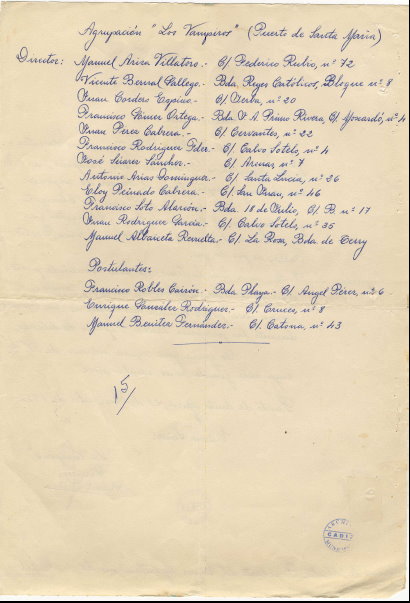 Agrupación "Los Vamperos" (Puerto de Santa María)
Director: Manuel Ariza Villatoro.- C/ Federico Rubio, nº 72
Vicente Bernal Gallego.- Bda. Reyes Católicos, Bloque nº 8
Juan Cordero Espino.- C/ Yerba, nº 20
Francisco Gómez Ortega.- Bda. J. A. Primo Rivera, C/ Moscardó, nº 4
Juan Perez Cabrera.- C/ Cervantes, nº 22
Francisco Rodriguez Fder.- C/ Calvo Sotelo, nº 4
José Suarez Sanchez.- C/ Arenas, nº 7
Antonio Arias Dominguez.- C/ Santa Lucia, nº 26
Eloy Peinado Cabrera.- C/ San Juan, nº 46
Francisco Soto Alarcón.- Bda. 18 de Julio, C/ B. nº 17
Juan Rodriguez Garcia.- C/ Calvo Sotelo, nº 35
Manuel Albaneta C/ La Rosa, Bda. de Terry
Postulantes:
Francisco Robles Cairón.- Bda Playa.- C/ Angel Pérez, nº 6
Enrique Gonzalez Rodriguez.- C/. Cruces, nº 8
Manuel Benitez Fernández.- C/. Catona, nº 43
15/
CADIZ